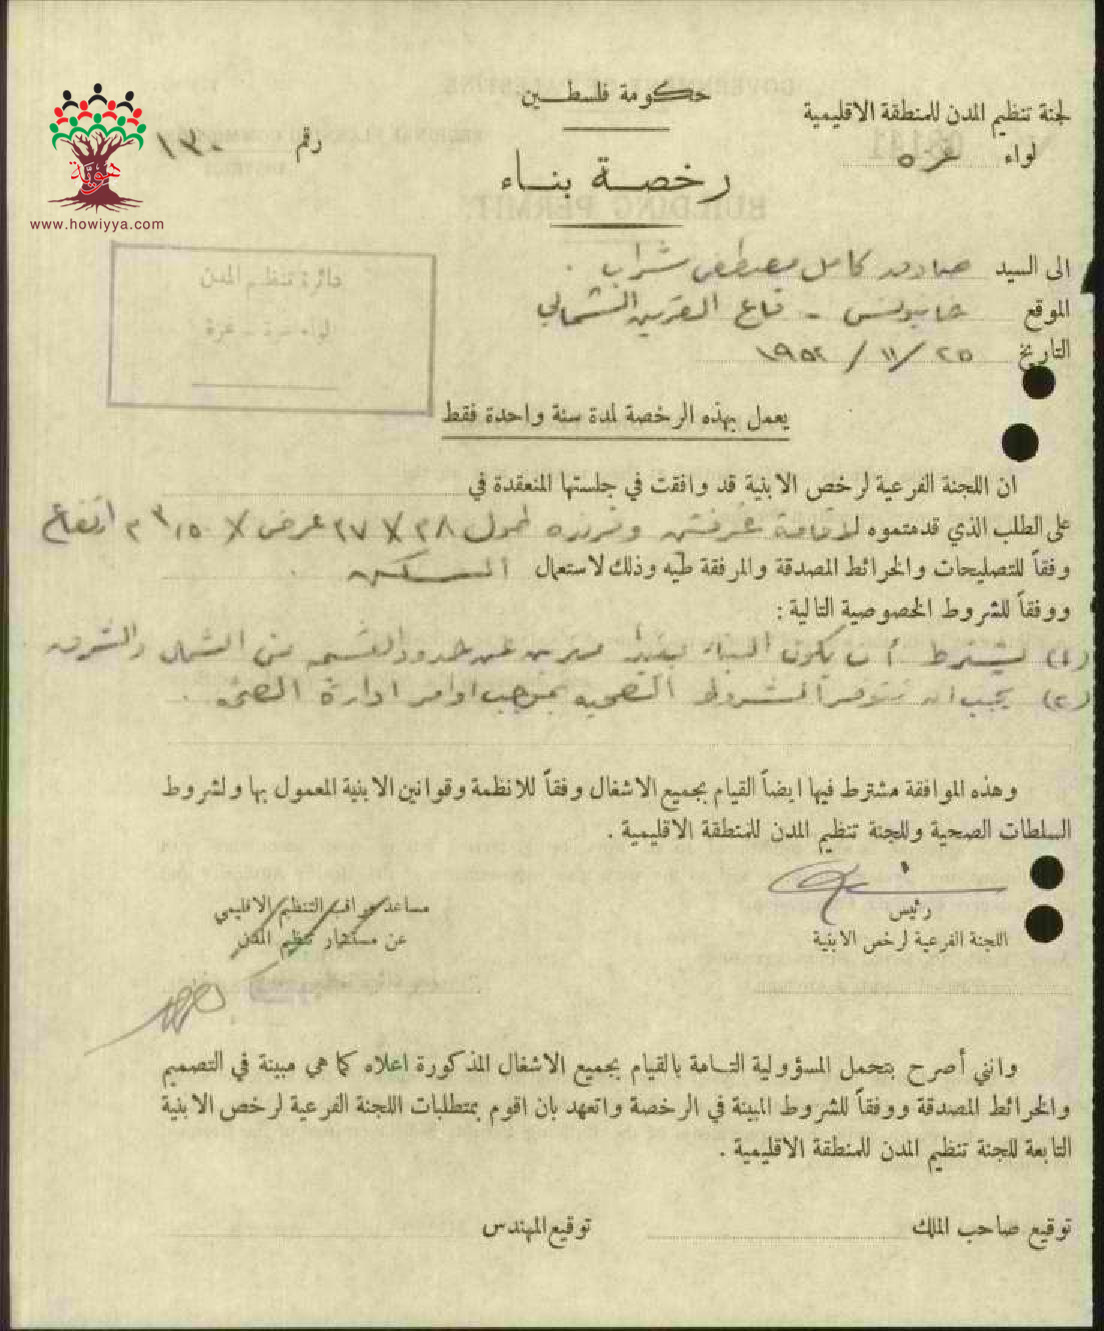 حكومة فلسطين
لجنة تنظيم المدن للمنطقة الاقليمية
لواء غزه
رقم ١٣٠
رخصة بناء
هوية
www.howiyya.com
دائرة تنظيم المدن
لواء غزة - غزة
الى السيد صادق كامل مصطفى شراب .
الموقع خانيونس - قاع القرين الشمالي
التاريخ ٢٥ / ١١ / ١٩٥٢
يعمل بهذه الرخصة لمدة سنة واحدة فقط
ان اللجنة الفرعية لرخص الابنية قد وافقت في جلستها المنعقدة في
على الطلب الذي قدمتموه لاقامة غرفتين وفرنده طول ٣٨ر٢٧ عرض ارتفاع
وفقاً للتصليحات والخرائط المصدقة والمرفقة طيه وذلك لاستعمال السكن .
ووفقاً للشروط الخصوصية التالية :
(١) يشترط أن يكون البناء مترين عن حدود القسيمه من الشمال والشرق
(٢) يجب ان تتوفر الشروط الصحيه بموجب اوامر ادارة الصحه .
وهذه الموافقة مشترط فيها ايضاً القيام بجميع الاشغال وفقاً للانظمة وقوانين الابنية المعمول بها ولشروط
السلطات الصحية وللجنة تنظيم المدن للمنطقة الاقليمية .
رئيس
اللجنة الفرعية لرخص الابنية
مساعد مراقب التنظيم الاقليمي
عن مستشار تنظيم المدن
وانني أصرح بتحمل المسؤولية التامة بالقيام بجميع الاشغال المذكورة اعلاه كما هي مبينة في التصميم
والخرائط المصدقة ووفقاً للشروط المبينة في الرخصة واتعهد بان اقوم بمتطلبات اللجنة الفرعية لرخص الابنية
التابعة للجنة تنظيم المدن للمنطقة الاقليمية .
توقيع صاحب الملك
توقيع المهندس